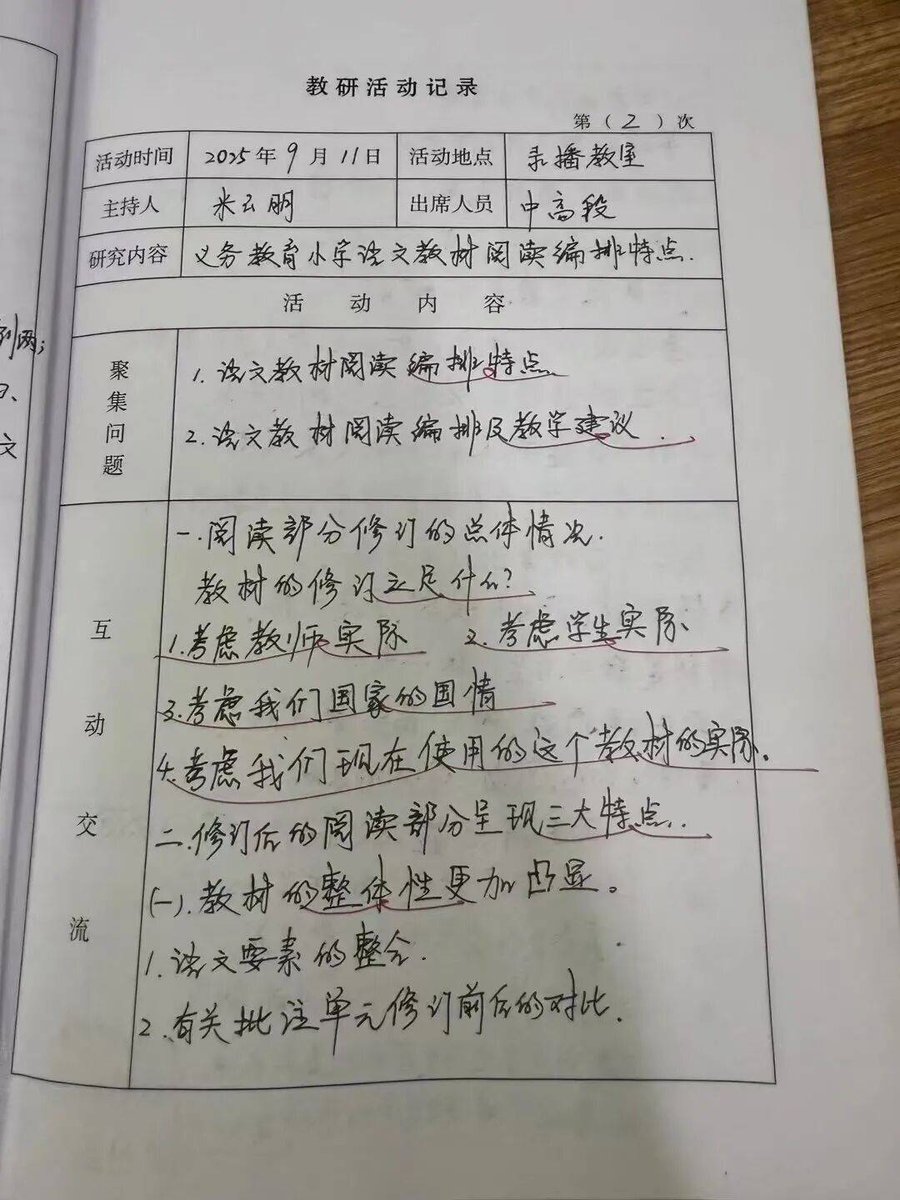 教研活动记录
第（2）次
活动时间 2025年9月11日 活动地点 录播教室
主持人 米云明 出席人员 中高段
研究内容 义务教育小学语文教材阅读编排特点.
活动内容
聚集问题
1. 语文教材阅读编排特点.
2. 语文教材阅读编排及教学建议.
互动交流
一.阅读部分修订的总体情况.
教材的修订立足什么?
1.考虑教师实际 2.考虑学生实际
3.考虑我们国家的国情
4.考虑我们现在使用的这个教材的实际.
二.修订后的阅读部分呈现三大特点.
(一).教材的整体性更加凸显。
1.语文要素的整合.
2.有关批注单元修订前后的对比.
到两;
文